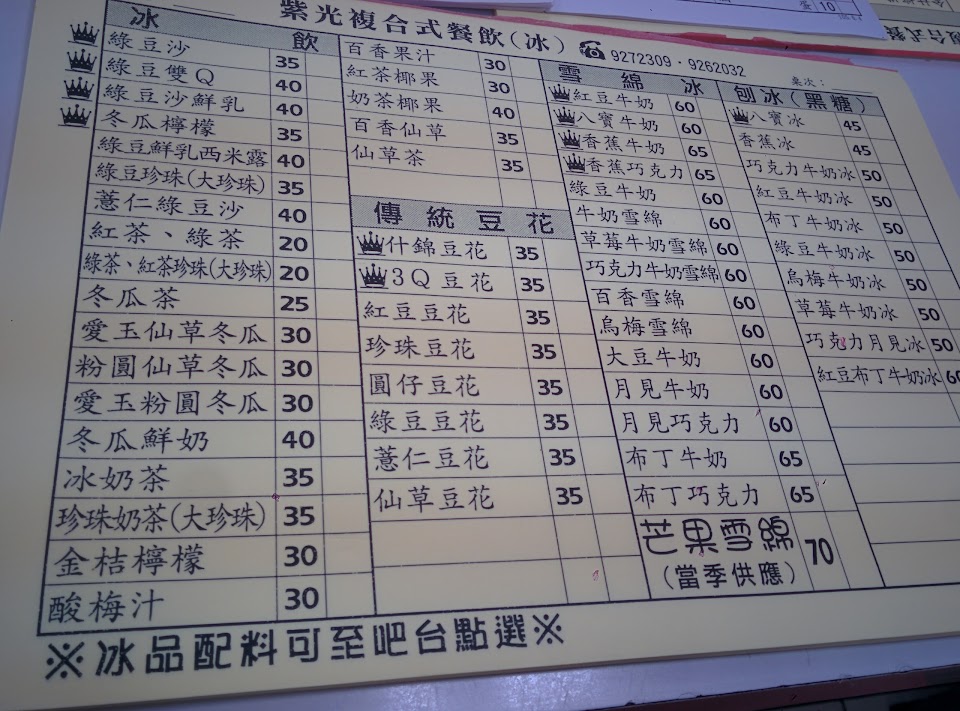 紫光複合式餐飲(冰) ☎ 9272309・9262032
桌次：
冰 飲
綠豆沙 35
綠豆雙Q 40
綠豆沙鮮乳 40
冬瓜檸檬 35
綠豆鮮乳西米露 40
綠豆珍珠(大珍珠) 35
薏仁綠豆沙 40
紅茶、綠茶 20
綠茶、紅茶珍珠(大珍珠) 20
冬瓜茶 25
愛玉仙草冬瓜 30
粉圓仙草冬瓜 30
愛玉粉圓冬瓜 30
冬瓜鮮奶 40
冰奶茶 35
珍珠奶茶(大珍珠) 35
金桔檸檬 30
酸梅汁 30
百香果汁 30
紅茶椰果 30
奶茶椰果 40
百香仙草 35
仙草茶 35
傳統豆花
什錦豆花 35
3Q豆花 35
紅豆豆花 35
珍珠豆花 35
圓仔豆花 35
綠豆豆花 35
薏仁豆花 35
仙草豆花 35
雪綿冰
紅豆牛奶 60
八寶牛奶 60
香蕉牛奶 65
香蕉巧克力 65
綠豆牛奶 60
牛奶雪綿 60
草莓牛奶雪綿 60
巧克力牛奶雪綿 60
百香雪綿 60
烏梅雪綿 60
大豆牛奶 60
月見牛奶 60
月見巧克力 60
布丁牛奶 65
布丁巧克力 65
芒果雪綿 70
(當季供應)
刨冰(黑糖)
八寶冰 45
香蕉冰 45
巧克力牛奶冰 50
紅豆牛奶冰 50
布丁牛奶冰 50
綠豆牛奶冰 50
烏梅牛奶冰 50
草莓牛奶冰 50
巧克力月見冰 50
紅豆布丁牛奶冰 60
※冰品配料可至吧台點選※